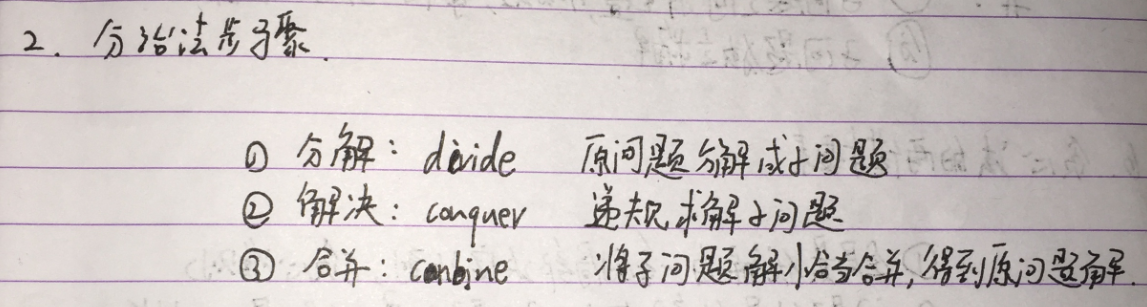 2. 分治法步骤.
① 分解: divide 原问题分解成子问题
② 解决: conquer 递规求解子问题
③ 合并: conbine 将子问题解恰当合并, 得到原问题解.